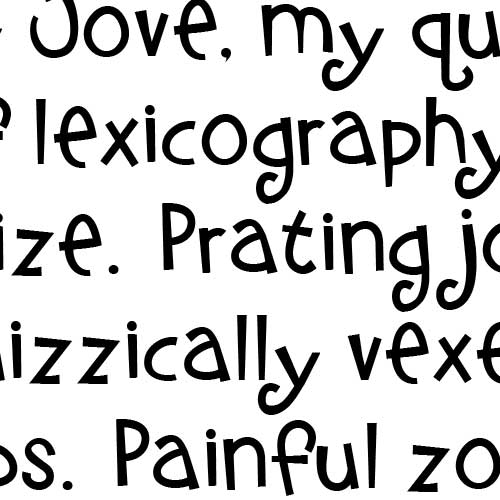 Jove, my qu
f lexicography
ize. Prating jo
izzically vexe
os. Painful zo